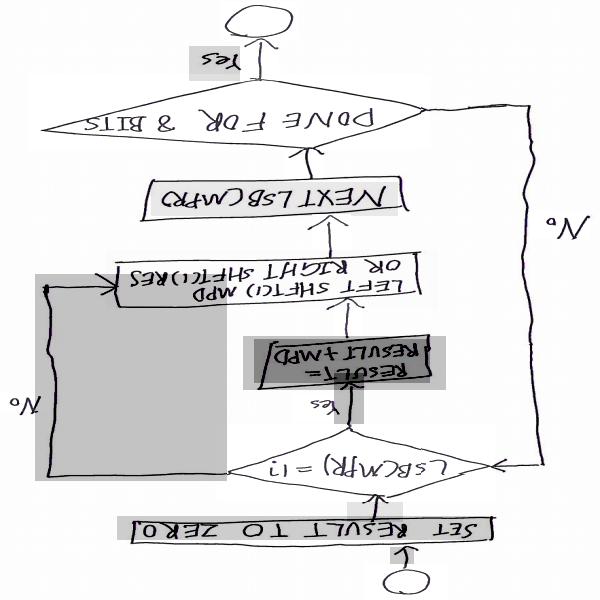 SET RESULT TO ZERO
LSB(MPR) = 1?
Yes
No
RESULT=
RESULT+MPD
LEFT SHFT(1) MPD
OR RIGHT SHFT(1) RES
NEXT LSB(MPR)
DONE FOR 8 BITS
No
Yes